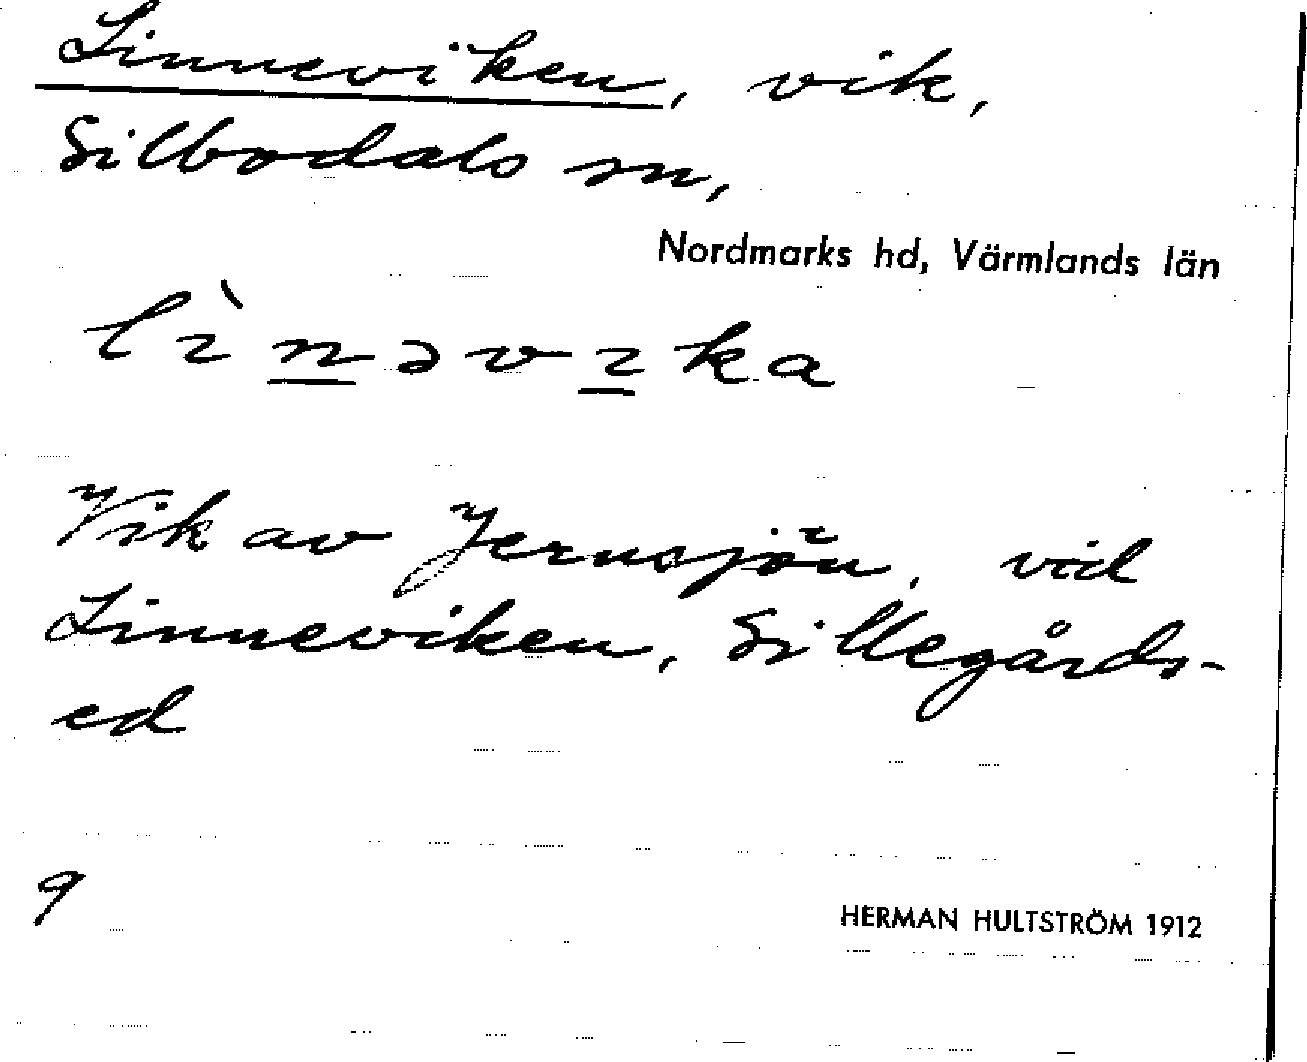 Linneviken, vik,
Silbodals sn,
Nordmarks hd, Värmlands län
lɩ̀n̲əvɩ̲ka
Vik av Jernsjön, vid
Linneviken, Sillegårds-
ed
9
HERMAN HULTSTRÖM 1912